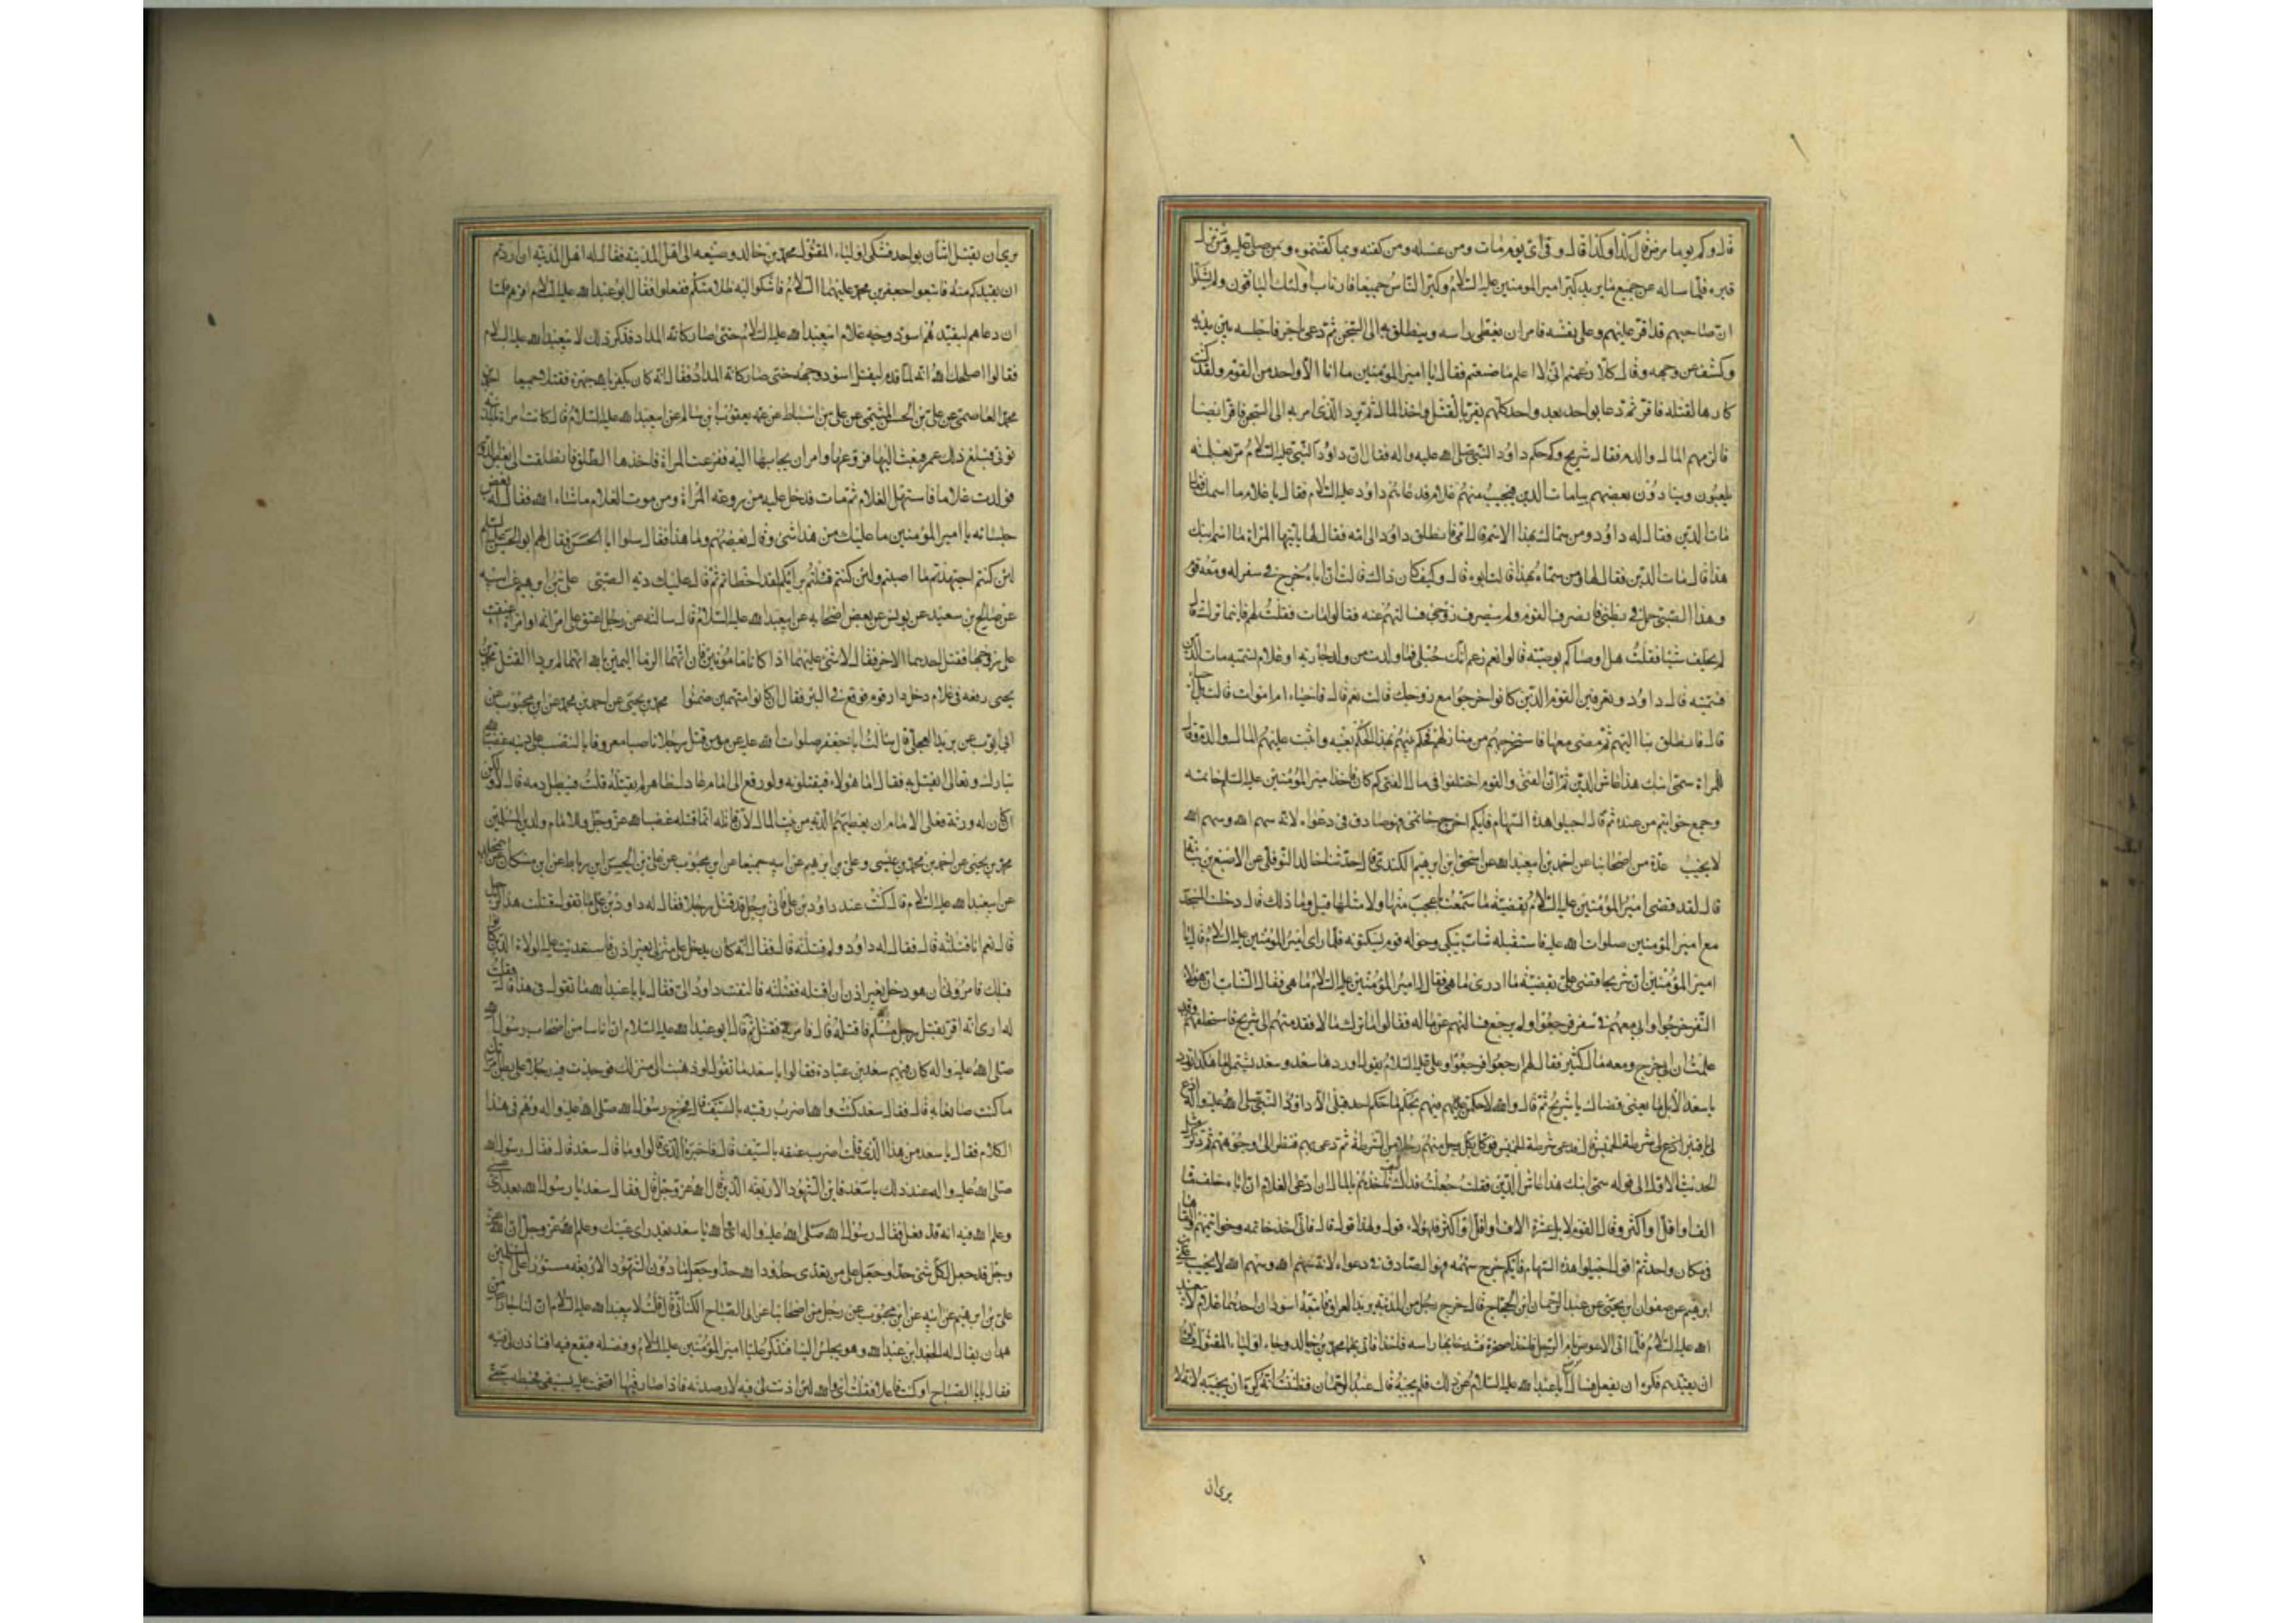 قال وكم يوما مرض قال كذا وكذا قال وفي اي يوم مات ومن غسله ومن كفنه وبما كفنتموه ومن صلى عليه ومن نزل
قبره فلما ساله عن جميع ما يريد كبر امير المومنين عليه السلام وكبر الناس جميعا فارتاب اولئك الباقون ولم يشكوا
ان صاحبهم قد اقر عليهم وعلى نفسه فامر ان يغطى راسه وينطلق به الى السجن ثم دعى باخر فاجلسه بين يديه
وكشف عن وجهه وقال كلا زعمتم اني لا اعلم ما صنعتم فقال يا امير المؤمنين ما انا الا واحد من القوم ولقد كنت
كارها لقتله فاقر ثم دعا بواحد بعد واحد كلهم يقر بالقتل واخذ المال ثم رد الذي امر به الى السجن فاقر ايضا
فالزمهم المال والدم فقال شريح وكيف حكم داود النبي صلى الله عليه واله فقال ان داود النبي عليه السلام مر بغلمة
يلعبون وينادون بعضهم بيا مات الدين فيجيب منهم غلام فدعاهم داود عليه السلام فقال يا غلام ما اسمك قال
مات الدين فقال له داود ومن سماك بهذا الاسم قال امي فانطلق داود الى امه فقال لها يا ايتها المراة ما اسم ابنك
هذا قالت مات الدين فقال لها ومن سماه بهذا قالت ابوه قال وكيف كان ذاك قالت ان اباه خرج في سفر له ومعه قوم
وهذا الصبي حمل في بطني فانصرف القوم ولم ينصرف زوجي فسالتهم عنه فقالوا مات فقلت لهم فاين ما ترك قالوا
لم يخلف شيئا فقلت هل اوصاكم بوصية قالوا نعم زعم انك حبلى فما ولدت من ولد جارية او غلام فسميه مات الدين
فسميته قال داود وتعرفين القوم الذين كانوا خرجوا مع زوجك قالت نعم قال فاحياء ام اموات قالت بل احياء
قال فانطلقي بنا اليهم ثم مضى معها فاستخرجهم من منازلهم فحكم بينهم بهذا الحكم بعينه واثبت عليهم المال والدم وقال
للمراة سمي ابنك هذا عاش الدين ثم ان الفتى والقوم اختلفوا في مال الفتى كم كان فاخذ امير المؤمنين عليه السلم خاتمه
وجميع خواتيم من عنده ثم قال اجيلوا هذه السهام فايكم اخرج خاتمي فهو صادق في دعواه لانه سهم الله وسهم الله
لا يخيب عدة من اصحابنا عن احمد بن ابيعبدالله عن اسحق بن ابرهيم الكندي قال حدثنا خالد النوفلي عن الاصبغ بن نباتة
قال لقد قضى امير المؤمنين عليه السلام بقضية ما سمعت باعجب منها ولا مثلها قيل وما ذلك قال دخلت المسجد
مع امير المؤمنين صلوات الله عليه فاستقبله شاب يبكي وحوله قوم يسكتونه فلما راى امير المؤمنين عليه السلام قال يا
امير المؤمنين ان شريحا قضى علي بقضية ما ادري ما هي فقال له امير المؤمنين عليه السلام ما هي فقال الشاب ان هؤلاء
النفر خرجوا وابي معهم في سفر فرجعوا ولم يرجع فسالتهم عن ماله فقالوا ما ترك مالا فقدمتهم الى شريح فاستحلفهم وقد
علمت ان ابي خرج ومعه مال كثير فقال لهم ارجعوا فرجعوا وعلي عليه السلام يقول اوردها سعد وسعد يشتمل ما هكذا تورد
يا سعد الابل ما يغني قضاك يا شريح ثم قال والله لاحكمن فيهم بحكم ما حكم احد قبلي الا داود النبي صلى الله عليه واله
يا قنبر ادع لي شرطة الخميس قال فدعى شرطة الخميس فوكل بكل رجل منهم رجلا من الشرطة ثم دعى بهم فنظر الى وجوههم ثم ذكر
الحديث الاول الى قوله سمي ابنك هذا عاش الدين فقلت جعلت فداك كيف ناخذهم بالمال ان ادعى الغلام ان اباه خلف مائة
الف او اقل او اكثر وقال القوم لا بل عشرة الاف او اقل او اكثر فلهؤلاء قول ولهذا قول قال فاني اخذ خاتمه وخواتيمهم والقيها
في مكان واحد ثم اقول اجيلوا هذه السهام فايكم خرج سهمه فهو الصادق في دعواه لانه سهم الله وسهم الله لا يخيب علي بن
ابرهيم عن صفوان بن يحيى عن عبدالرحمان بن الحجاج قال خرج رجل من المدينة يريد العراق فاتبعه اسودان احدهما غلام لابيعبد
الله عليه السلام فلما اتى الاعوص نام الرجل فاخذا صخرة فشدخا بها راسه فاخذا فاتي بهما محمد بن خالد وجاء اولياء المقتول
ان يقيدهم فكره ان يفعل فسال اباعبدالله عليه السلام عن ذلك فلم يجبه قال عبدالرحمان فظننت انه كره ان يجيبه لانه لا
يرى ان
يرى ان يقتل اثنان بواحد فشكى اولياء المقتول محمد بن خالد وصنيعه الى اهل المدينة فقال له اهل المدينة ان اردتم
ان يقيدكم منه فاتبعوا جعفر بن محمد عليهما السلام فاشكوا اليه ظلامتكم ففعلوا فقال ابوعبدالله عليه السلام اقدهم فلما
ان دعاهم ليقيدهم اسود وجه غلام ابيعبدالله عليه السلام حتى صار كانه المداد فذكر ذلك لابيعبدالله عليه السلام
فقالوا اصلحك الله انه لما قدم ليقتل اسود وجهه حتى صار كانه المداد فقال انه كان يكفر بالله جهرة فقتلا جميعا احمد بن
محمد العاصمي عن علي بن الحسن الميثمي عن علي بن اسباط عن عمه يعقوب بن سالم عن ابيعبدالله عليه السلام قال كانت امراة بالمدينة
تؤتى فبلغ ذلك عمر فبعث اليها فروعها وامر ان يجاء بها اليه ففزعت المراة فاخذها الطلق فانطلقت الى بعض الدور
فولدت غلاما فاستهل الغلام ثم مات فدخل عليه من روعة المراة ومن موت الغلام ما شاء الله فقال له بعض
جلسائه يا امير المؤمنين ما عليك من هذا شيء وقال بعضهم وما هذا فقال سلوا ابا الحسن فقال لهم ابو الحسن عليه السلم
لئن كنتم اجتهدتم ما اصبتم ولئن كنتم قلتم برايكم لقد اخطاتم ثم قال عليك دية الصبي علي بن ابرهيم عن ابيه
عن صالح بن سعيد عن يونس عن بعض اصحابه عن ابيعبدالله عليه السلام قال سالته عن رجل اعنف على امراته او امراة اعنفت
على زوجها فقتل احدهما الاخر فقال لا شيء عليهما اذا كانا مامونين فان اتهما الزما اليمين بالله انهما لم يريدا القتل محمد بن
يحيى رفعه في غلام دخل دار قوم فوقع في البئر فقال ان كانوا متهمين ضمنوا محمد بن يحيى عن احمد بن محمد عن ابن محبوب عن
ابي ايوب عن بريد العجلي قال سالت اباجعفر صلوات الله عليه عن مؤمن قتل رجلا ناصبا معروفا بالنصب على دينه غضبا لله
تبارك وتعالى ايقتل به فقال اما هؤلاء فيقتلونه ولو رفع الى امام عادل ظاهر لم يقتله قلت فيبطل دمه قال لا ولكن
ان كان له ورثة فعلى الامام ان يعطيهم الدية من بيت المال لان قاتله انما قتله غضبا لله عز وجل وللامام ولدين المسلمين
محمد بن يحيى عن احمد بن محمد بن عيسى وعلي بن ابرهيم عن ابيه جميعا عن ابن محبوب عن علي بن الحسن بن رباط عن ابن مسكان عن ابي مخلد
عن ابيعبدالله عليه السلام قال كنت عند داود بن علي فاتي برجل قد قتل رجلا فقال له داود بن علي ما تقول قتلت هذا الرجل
قال نعم انا قتلته قال فقال له داود ولم قتلته قال فقال انه كان يدخل على منزلي بغير اذن فاستعديت عليه الولاة الذين كانوا
قبلك فامروني ان هو دخل بغير اذن ان اقتله فقتلته فالتفت داود الي فقال يا باعبدالله ما تقول في هذا قال فقلت
له ارى انه اقر بقتل رجل مسلم فاقتله قال فامر به فقتل ثم قال ابوعبدالله عليه السلام ان اناسا من اصحاب رسول الله
صلى الله عليه واله كان فيهم سعد بن عبادة فقالوا يا سعد ما تقول لو ذهبت الى منزلك فوجدت فيه رجلا على بطن امراتك
ما كنت صانعا به قال فقال سعد كنت والله اضرب رقبته بالسيف قال فخرج رسول الله صلى الله عليه واله وهم في هذا
الكلام فقال يا سعد من هذا الذي قلت اضرب عنقه بالسيف قال فاخبره الذي قالوا وما قال سعد قال فقال رسول الله
صلى الله عليه واله عند ذلك يا سعد فاين الشهود الاربعة الذين قال الله عز وجل قال فقال سعد يا رسول الله بعد راي عيني
وعلم الله فيه انه قد فعل فقال رسول الله صلى الله عليه واله اي والله يا سعد بعد راي عينك وعلم الله عز وجل ان الله عز
وجل قد جعل لكل شيء حدا وجعل على من تعدى حدود الله حدا وجعل ما دون الشهود الاربعة مستورا على المسلمين
علي بن ابرهيم عن ابيه عن ابن محبوب عن رجل من اصحابنا عن ابي الصباح الكناني قال قلت لابيعبدالله عليه السلام ان لنا جارا من
همدان يقال له الجعد بن عبدالله وهو يجلس الينا فنذكر عليا امير المؤمنين عليه السلام وفضله فيقع فيه افتاذن لي فيه
فقال يا ابا الصباح او كنت فاعلا فقلت اي والله لئن اذنت لي فيه لارصدنه فاذا صار فيها اقتحمت عليه بسيفي فخبطته حتى